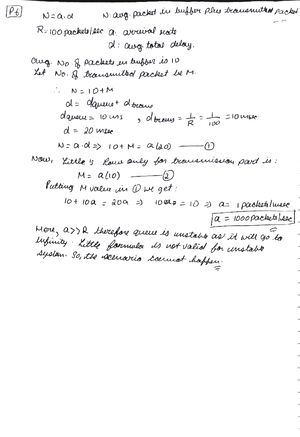 P6
N = a·d N: avg packet in buffer plus transmitted packet
R = 100 packets/sec a: arrival rate
d: avg total delay.
Avg. No of packets in buffer is 10
Let No. of transmitted packet be M.
∴ N = 10+M
d = dqueue + dtrans
dqueue = 10 ms , dtrans = 1/R = 1/100 = 10 msec
d = 20 msec
N = a·d ⇒ 10+M = a(20) —— ①
Now, Little's law only for transmission part is:
M = a(10) —— ②
Putting M value in ① we get:
10 + 10a = 20a ⇒ 10a = 10 ⇒ a = 1 packets/msec
a = 1000 packets/sec
Here, a>>R therefore queue is unstable as it will go to
infinity. Little formula is not valid for unstable
system. So, the scenario cannot happen.